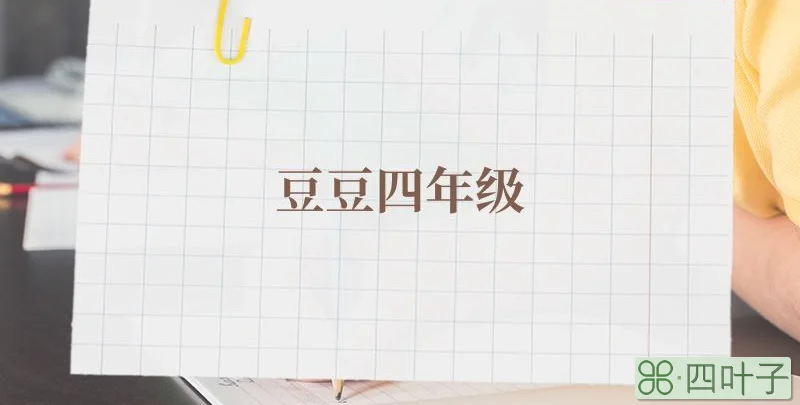 豆豆四年级
四叶子